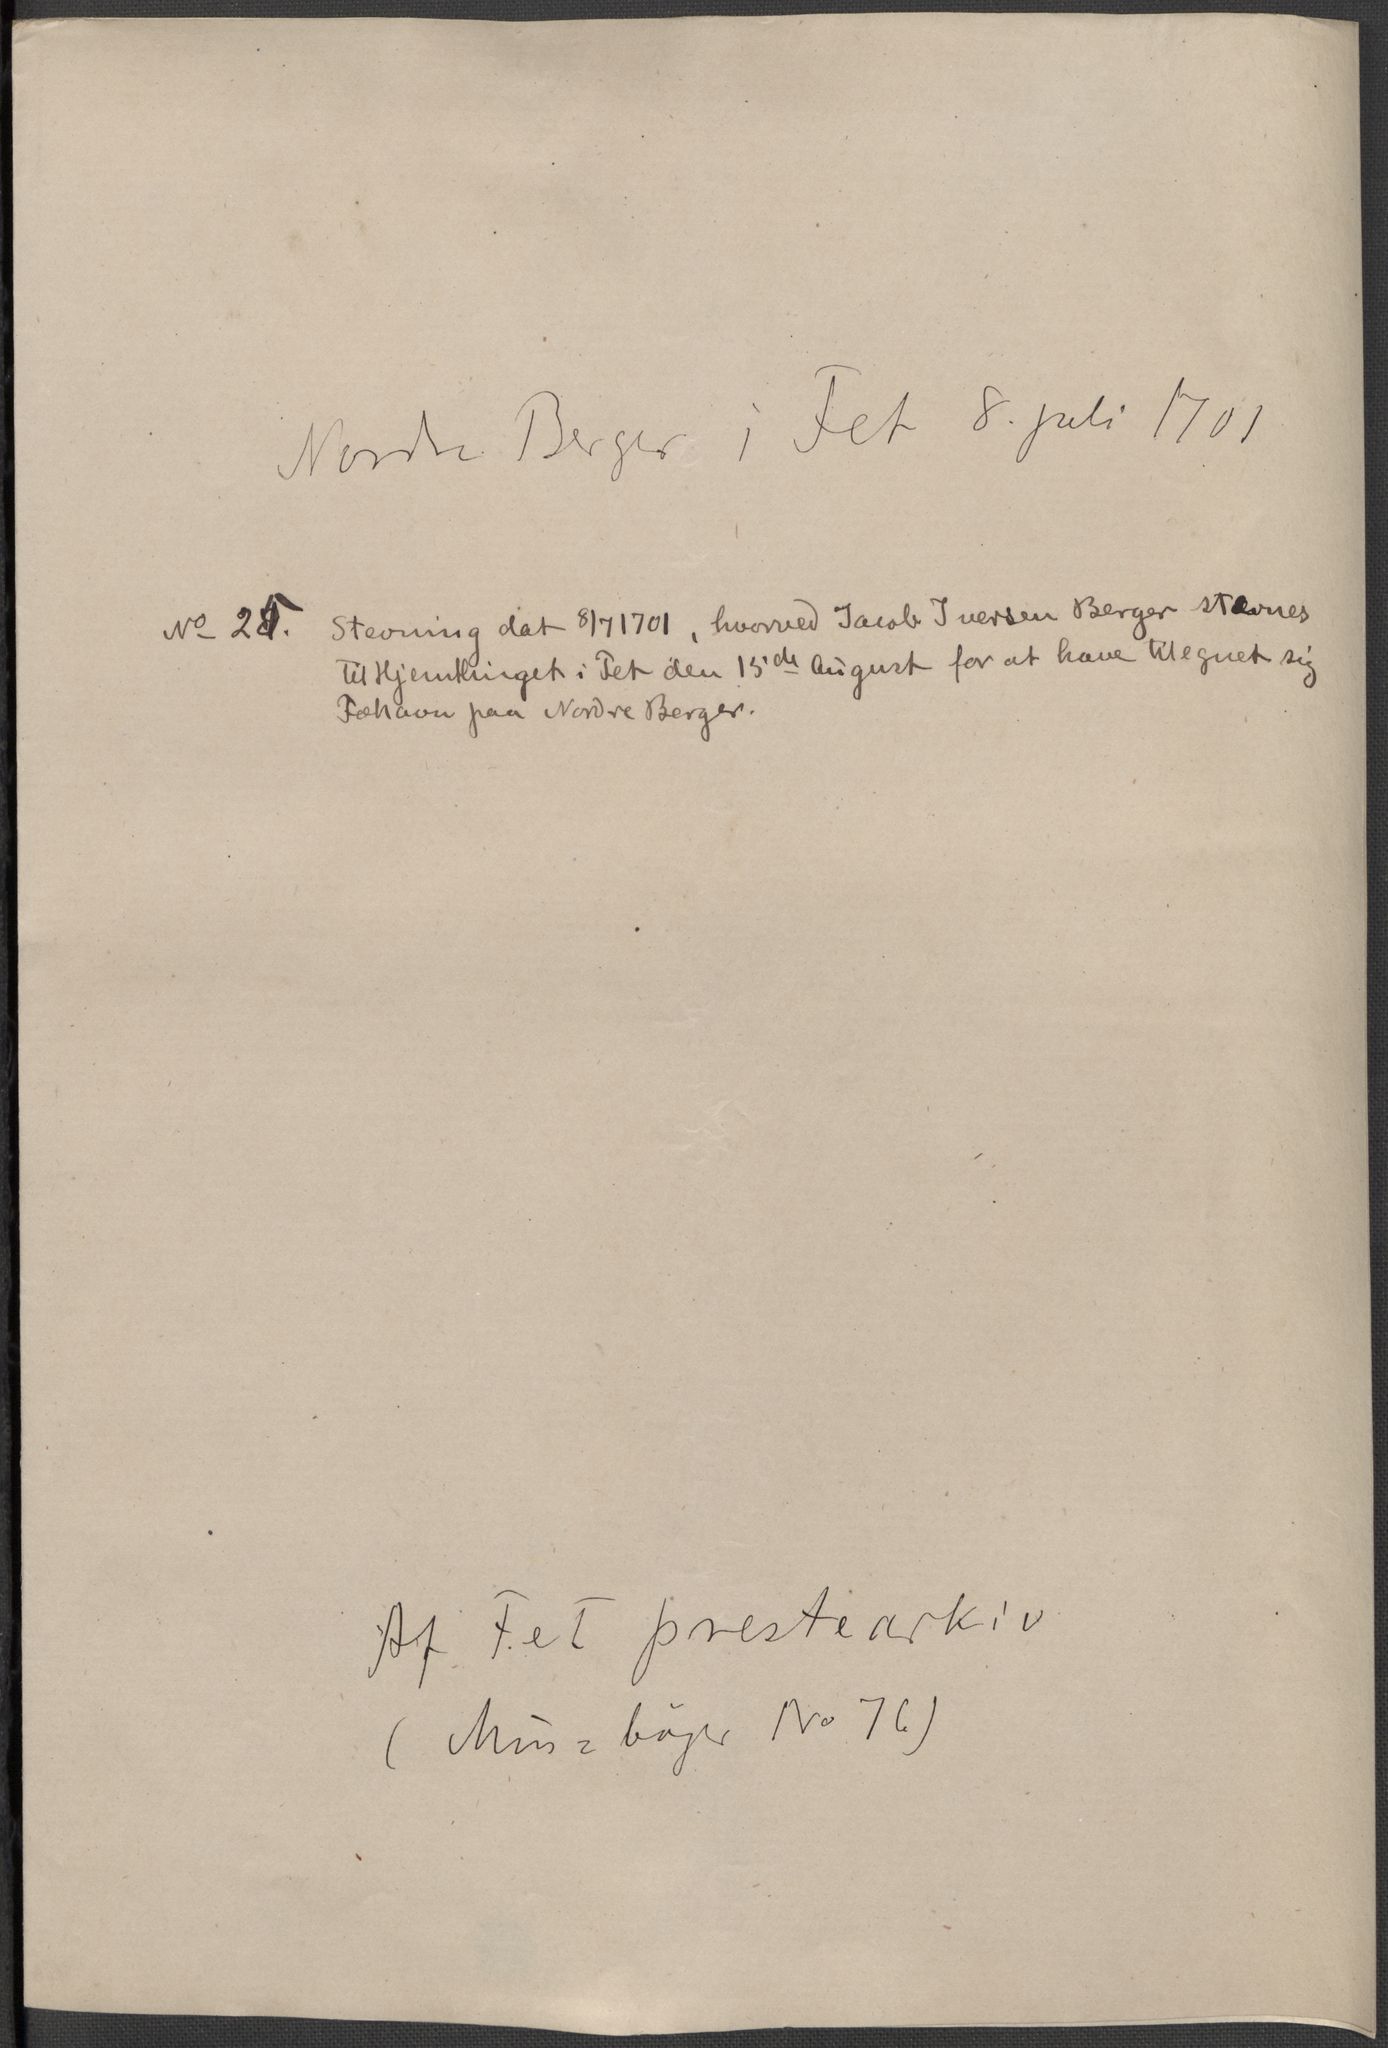 Nordre Berger i Fet 8. juli 1701
No 25. Stevning dat 8/7 1701, hvorved Jacob Iversen Berger stevnes
til Hjemthinget i Fet den 15de August for at have tilegnet sig
Fæhavn paa Nordre Berger.
Af Fet prestearkiv
( bøger No 76)